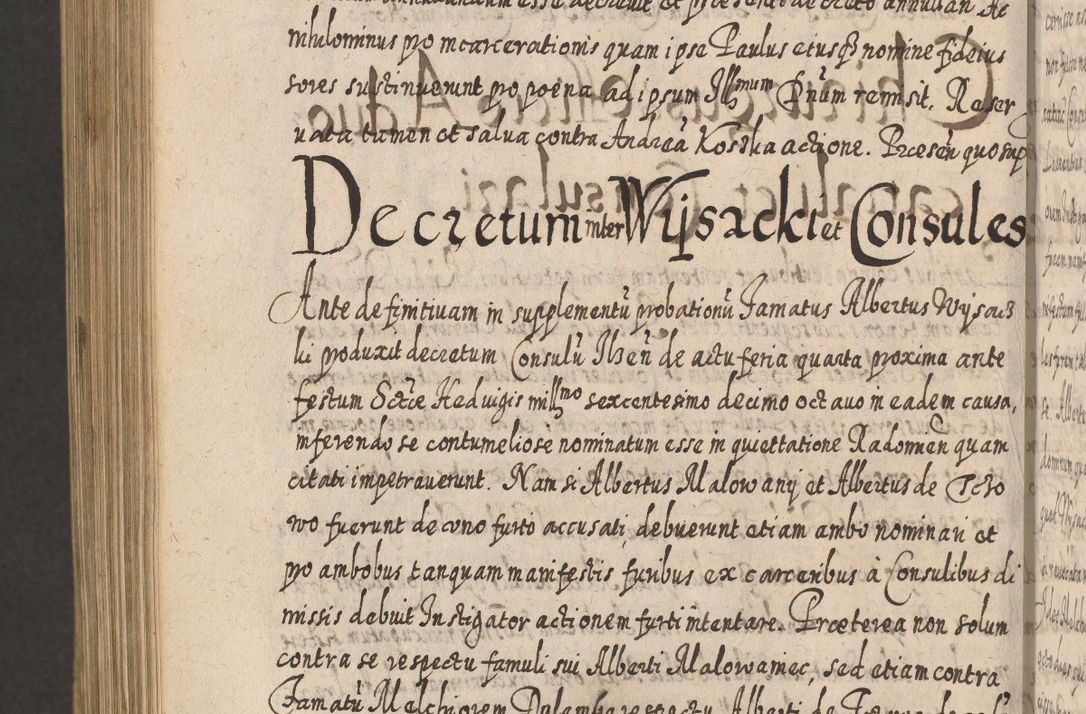 nihilominus pro incarcerationis quam ipse Paulus eiusq3 nomine fideius
sores sustinuerunt pro poena ad ipsum Illmum Dnum remisit. Reser
uata tamen et salua contra Andreā Koszka actione. Præsen quo sup
Decretum inter Wijsocki et Consules
Ante definitiuam in supplementū probationū Famatus Albertus Wijsocz
ki produxit decretum Consulū Ilzeñ de actu feria quarta proxima ante
festum Sctæ Heduigis millmo sexcentesimo decimo octauo in eadem causa,
inferendo se contumeliose nominatum esse in quettatione Radomien quam
citati impetrauerunt. Nam si Albertus Malowany et Albertus de Tczo
wo fuerunt de vno furto accusati, debuerunt etiam ambo nominari et
pro ambobus tanquam manifestis furibus ex carceribus à Consulibus di
missis debuit Instigator actionem furti intentare. Præterea non solum
contra se respectu famuli sui Alberti Malowaniec, sed etiam contra
Famatū Melchiorem respectu Alberti de